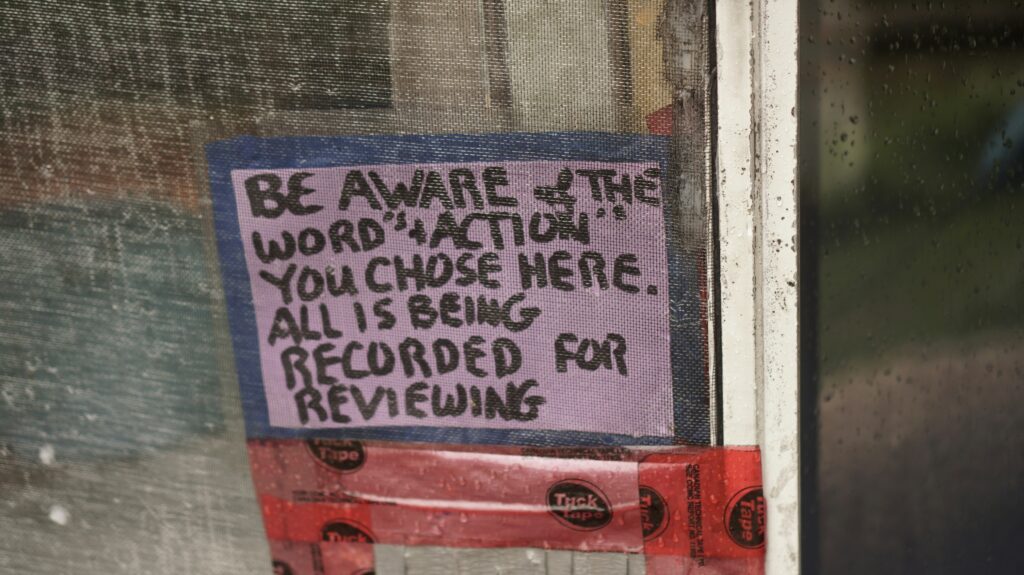 BE AWARE of THE
WORD "+ ACTION"
YOU CHOSE HERE.
ALL IS BEING
RECORDED FOR
REVIEWING
Tuck
Tape
Tuck
Tape
Tuck
Tape
Tuck
Tape
Tuck